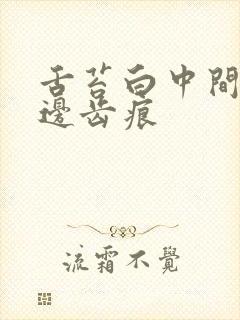 舌苔白中間
邊齿痕
流霜不覺